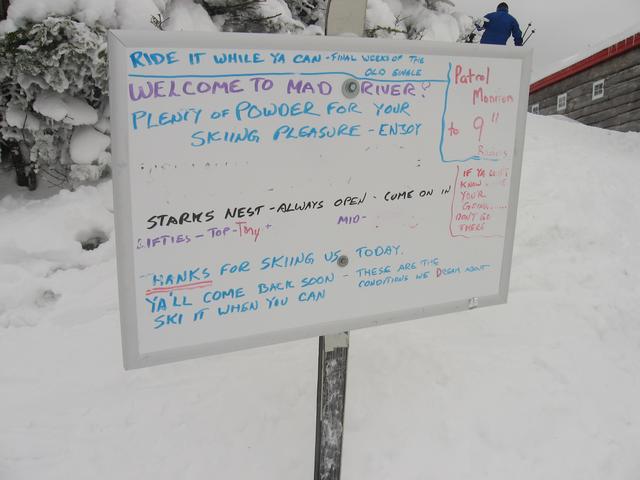 RIDE IT WHILE YA CAN - FINAL WEEKS OF THE
OLD SINGLE
WELCOME TO MAD RIVER!
PLENTY OF POWDER FOR YOUR
SKIING PLEASURE - ENJOY
Patrol
to 9"
IF YA DON'T
KNOW
YOU'R
GOING......
DON'T GO
THERE
STARKS NEST - ALWAYS OPEN - COME ON IN
LIFTIES - TOP - Tony +
MID -
THANKS FOR SKIING US TODAY.
YA'LL COME BACK SOON - THESE ARE THE
CONDITIONS WE DREAM ABOUT
SKI IT WHEN YOU CAN